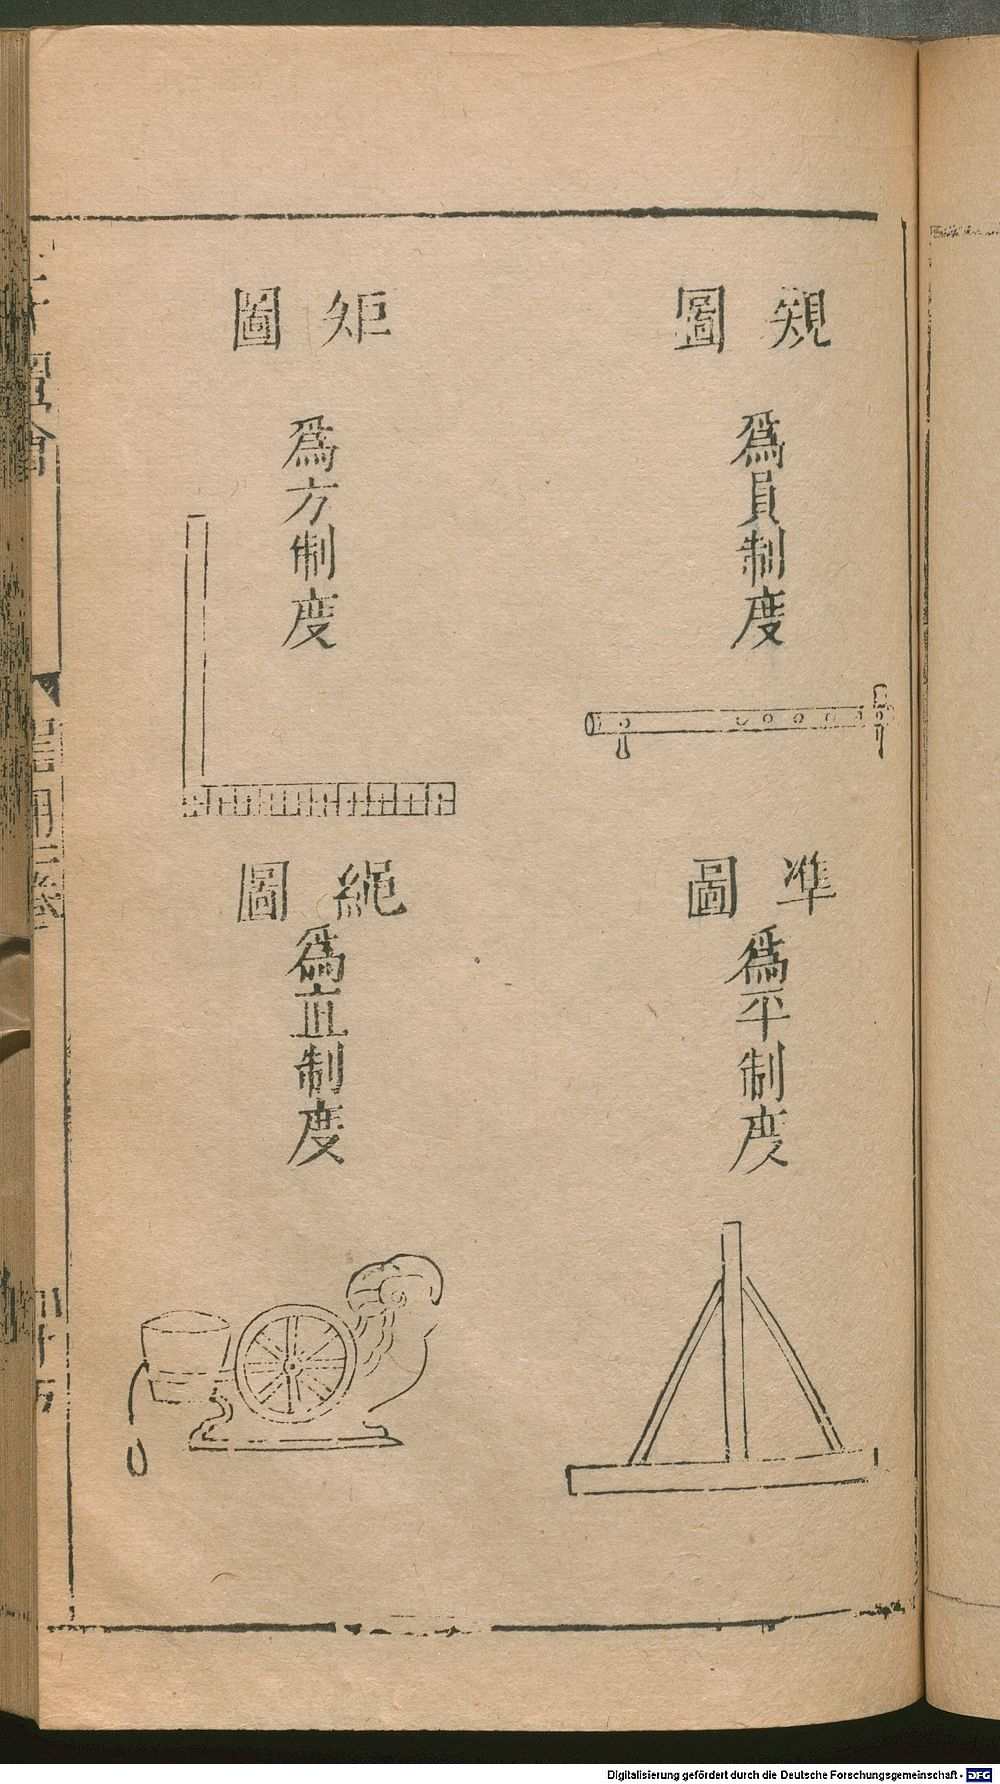 䂓圖
爲員制度
準圖
爲平制度
矩圖
爲方制度
繩圖
爲直制度
噐用
卷
Digitalisierung gefördert durch die Deutsche Forschungsgemeinschaft - DFG